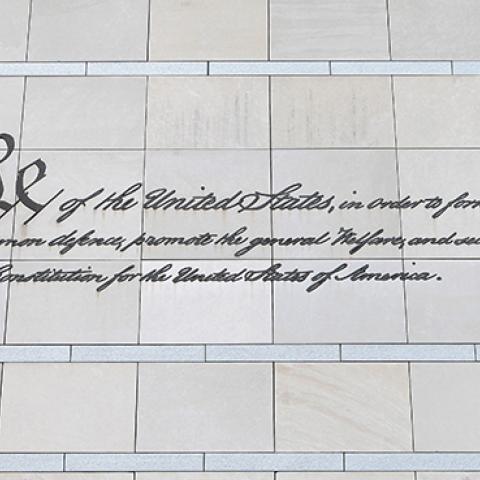 of the United States, in order to form
mon defence, promote the general Welfare, and sec
Constitution for the United States of America.